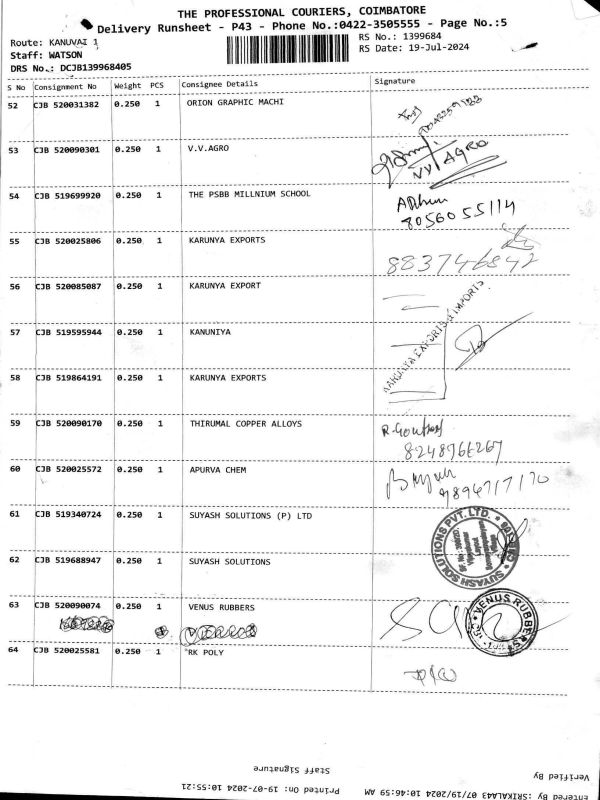 THE PROFESSIONAL COURIERS, COIMBATORE
Delivery Runsheet - P43 - Phone No.:0422-3505555 - Page No.:5
Route: KANUVAI 1
RS No.: 1399684
Staff: WATSON
RS Date: 19-Jul-2024
DRS No.: DCJB139968405
S No Consignment No Weight PCS Consignee Details Signature
52 CJB 520031382 0.250 1 ORION GRAPHIC MACHI
53 CJB 520090301 0.250 1 V.V.AGRO
VV AGRO
54 CJB 519699920 0.250 1 THE PSBB MILLNIUM SCHOOL
8056055114
55 CJB 520025806 0.250 1 KARUNYA EXPORTS
883746842
56 CJB 520085087 0.250 1 KARUNYA EXPORT
KARUNYA EXPORTS & IMPORTS
57 CJB 519595944 0.250 1 KANUNIYA
58 CJB 519864191 0.250 1 KARUNYA EXPORTS
59 CJB 520090170 0.250 1 THIRUMAL COPPER ALLOYS
8248966267
60 CJB 520025572 0.250 1 APURVA CHEM
9894717170
61 CJB 519340724 0.250 1 SUYASH SOLUTIONS (P) LTD
SUYASH SOLUTIONS PVT. LTD.
62 CJB 519688947 0.250 1 SUYASH SOLUTIONS
63 CJB 520090074 0.250 1 VENUS RUBBERS
VENUS RUBBERS
64 CJB 520025581 0.250 1 RK POLY
Staff Signature
Verified By
Printed On: 19-07-2024 10:55:21
Entered By: SRIKALA43 07/19/2024 10:46:59 AM